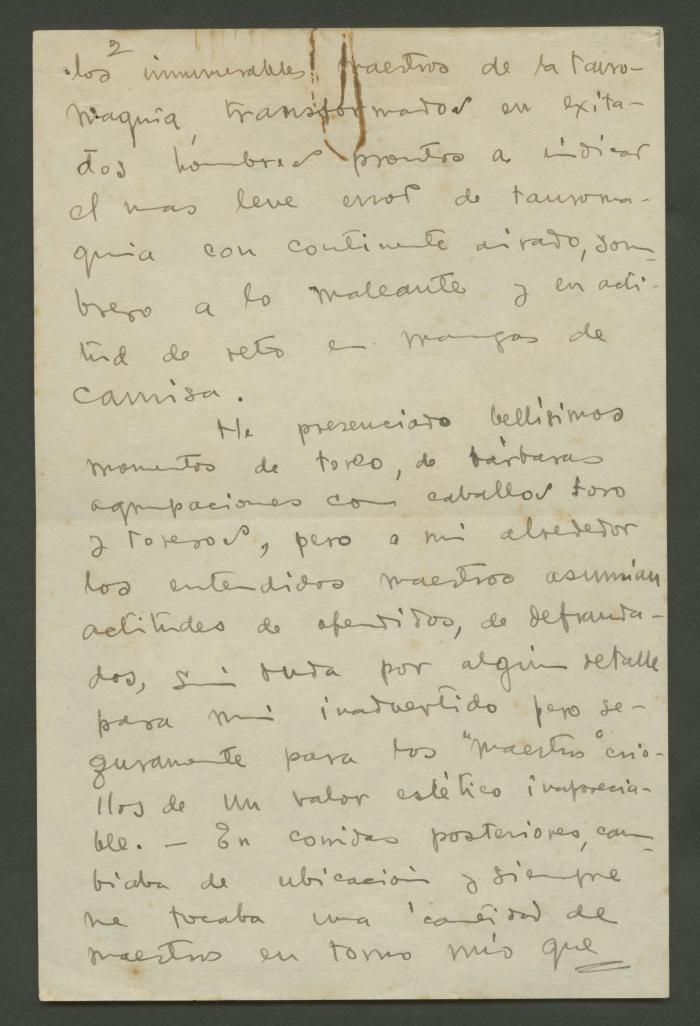 2
los innumerables maestros de la tauro-
maquia, transformados en exita-
dos hombres prontos a indicar
el mas leve error de tauroma-
quia con continente airado, som-
brero a lo maleante y en acti-
tud de reto en mangas de
camisa.
He presenciado bellísimos
momentos de toreo, de bárbaras
agrupaciones con caballos toro
y toreros, pero a mi alrededor
los entendidos maestros asumian
actitudes de ofendidos, de defrauda-
dos, sin duda por algun detalle
para mi inadvertido pero se-
guramente para los "maestros" crio-
llos de un valor estético inaprecia-
ble. — En corridas posteriores, cam-
biaba de ubicación y siempre
me tocaba una cantidad de
maestros en torno mío que